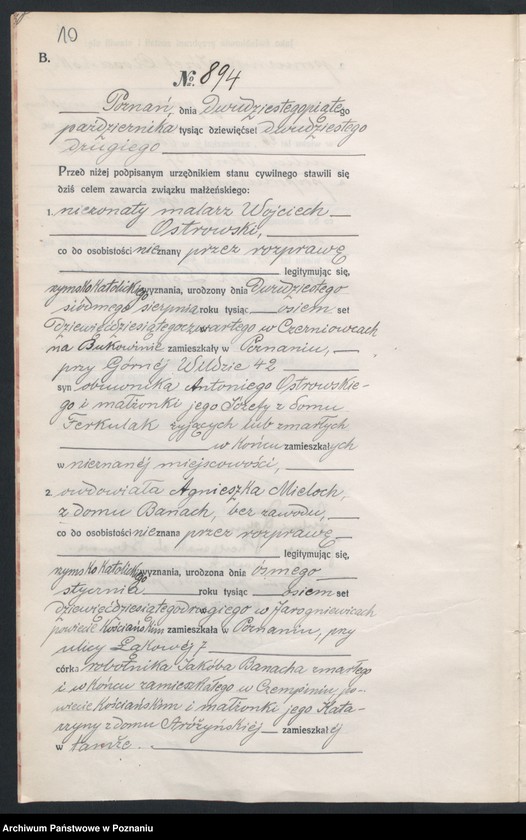 10
B.
№ 894
Poznań, dnia Dwudziestegopiątego
października tysiąc dziewięćset dwudziestego
drugiego
Przed niżej podpisanym urzędnikiem stanu cywilnego stawili się
dziś celem zawarcia związku małżeńskiego:
1. nieżonaty malarz Wojciech
Ostrowski,
co do osobistości nieznany przez rozprawę
legitymując się,
rzymsko katolickiego wyznania, urodzony dnia Dwudziestego
siódmego sierpnia roku tysiąc osiem set
dziewięćdziesiątegoczwartego w Czerniowcach
na Bukowinie zamieszkały w Poznaniu,
przy Górnéj Wildzie 42
syn obuwnika Antoniego Ostrowskie-
go i małżonki jego Józefy z domu
Ferkulak żyjących lub zmarłych
w końcu zamieszkałych
w nieznanéj miejscowości,
2. owdowiała Agnieszka Mieloch,
z domu Banach, bez zawodu,
co do osobistości nieznana przez rozprawę
legitymując się,
rzymsko katolickiego wyznania, urodzona dnia ósmego
stycznia roku tysiąc osiem set
dziewięćdziesiątegodrugiego w Jarogniewicach
powiecie Kościańskim zamieszkała w Poznaniu, przy
ulicy Łąkowéj 7
córka robotnika Jakóba Banacha zmarłego
i w końcu zamieszkałego w Czempiniu po-
wiecie Kościańskim i małżonki jego Kata-
rzyny z domu Stróżyńskiéj zamieszkałéj
w tamże.
Archiwum Państwowe w Poznaniu